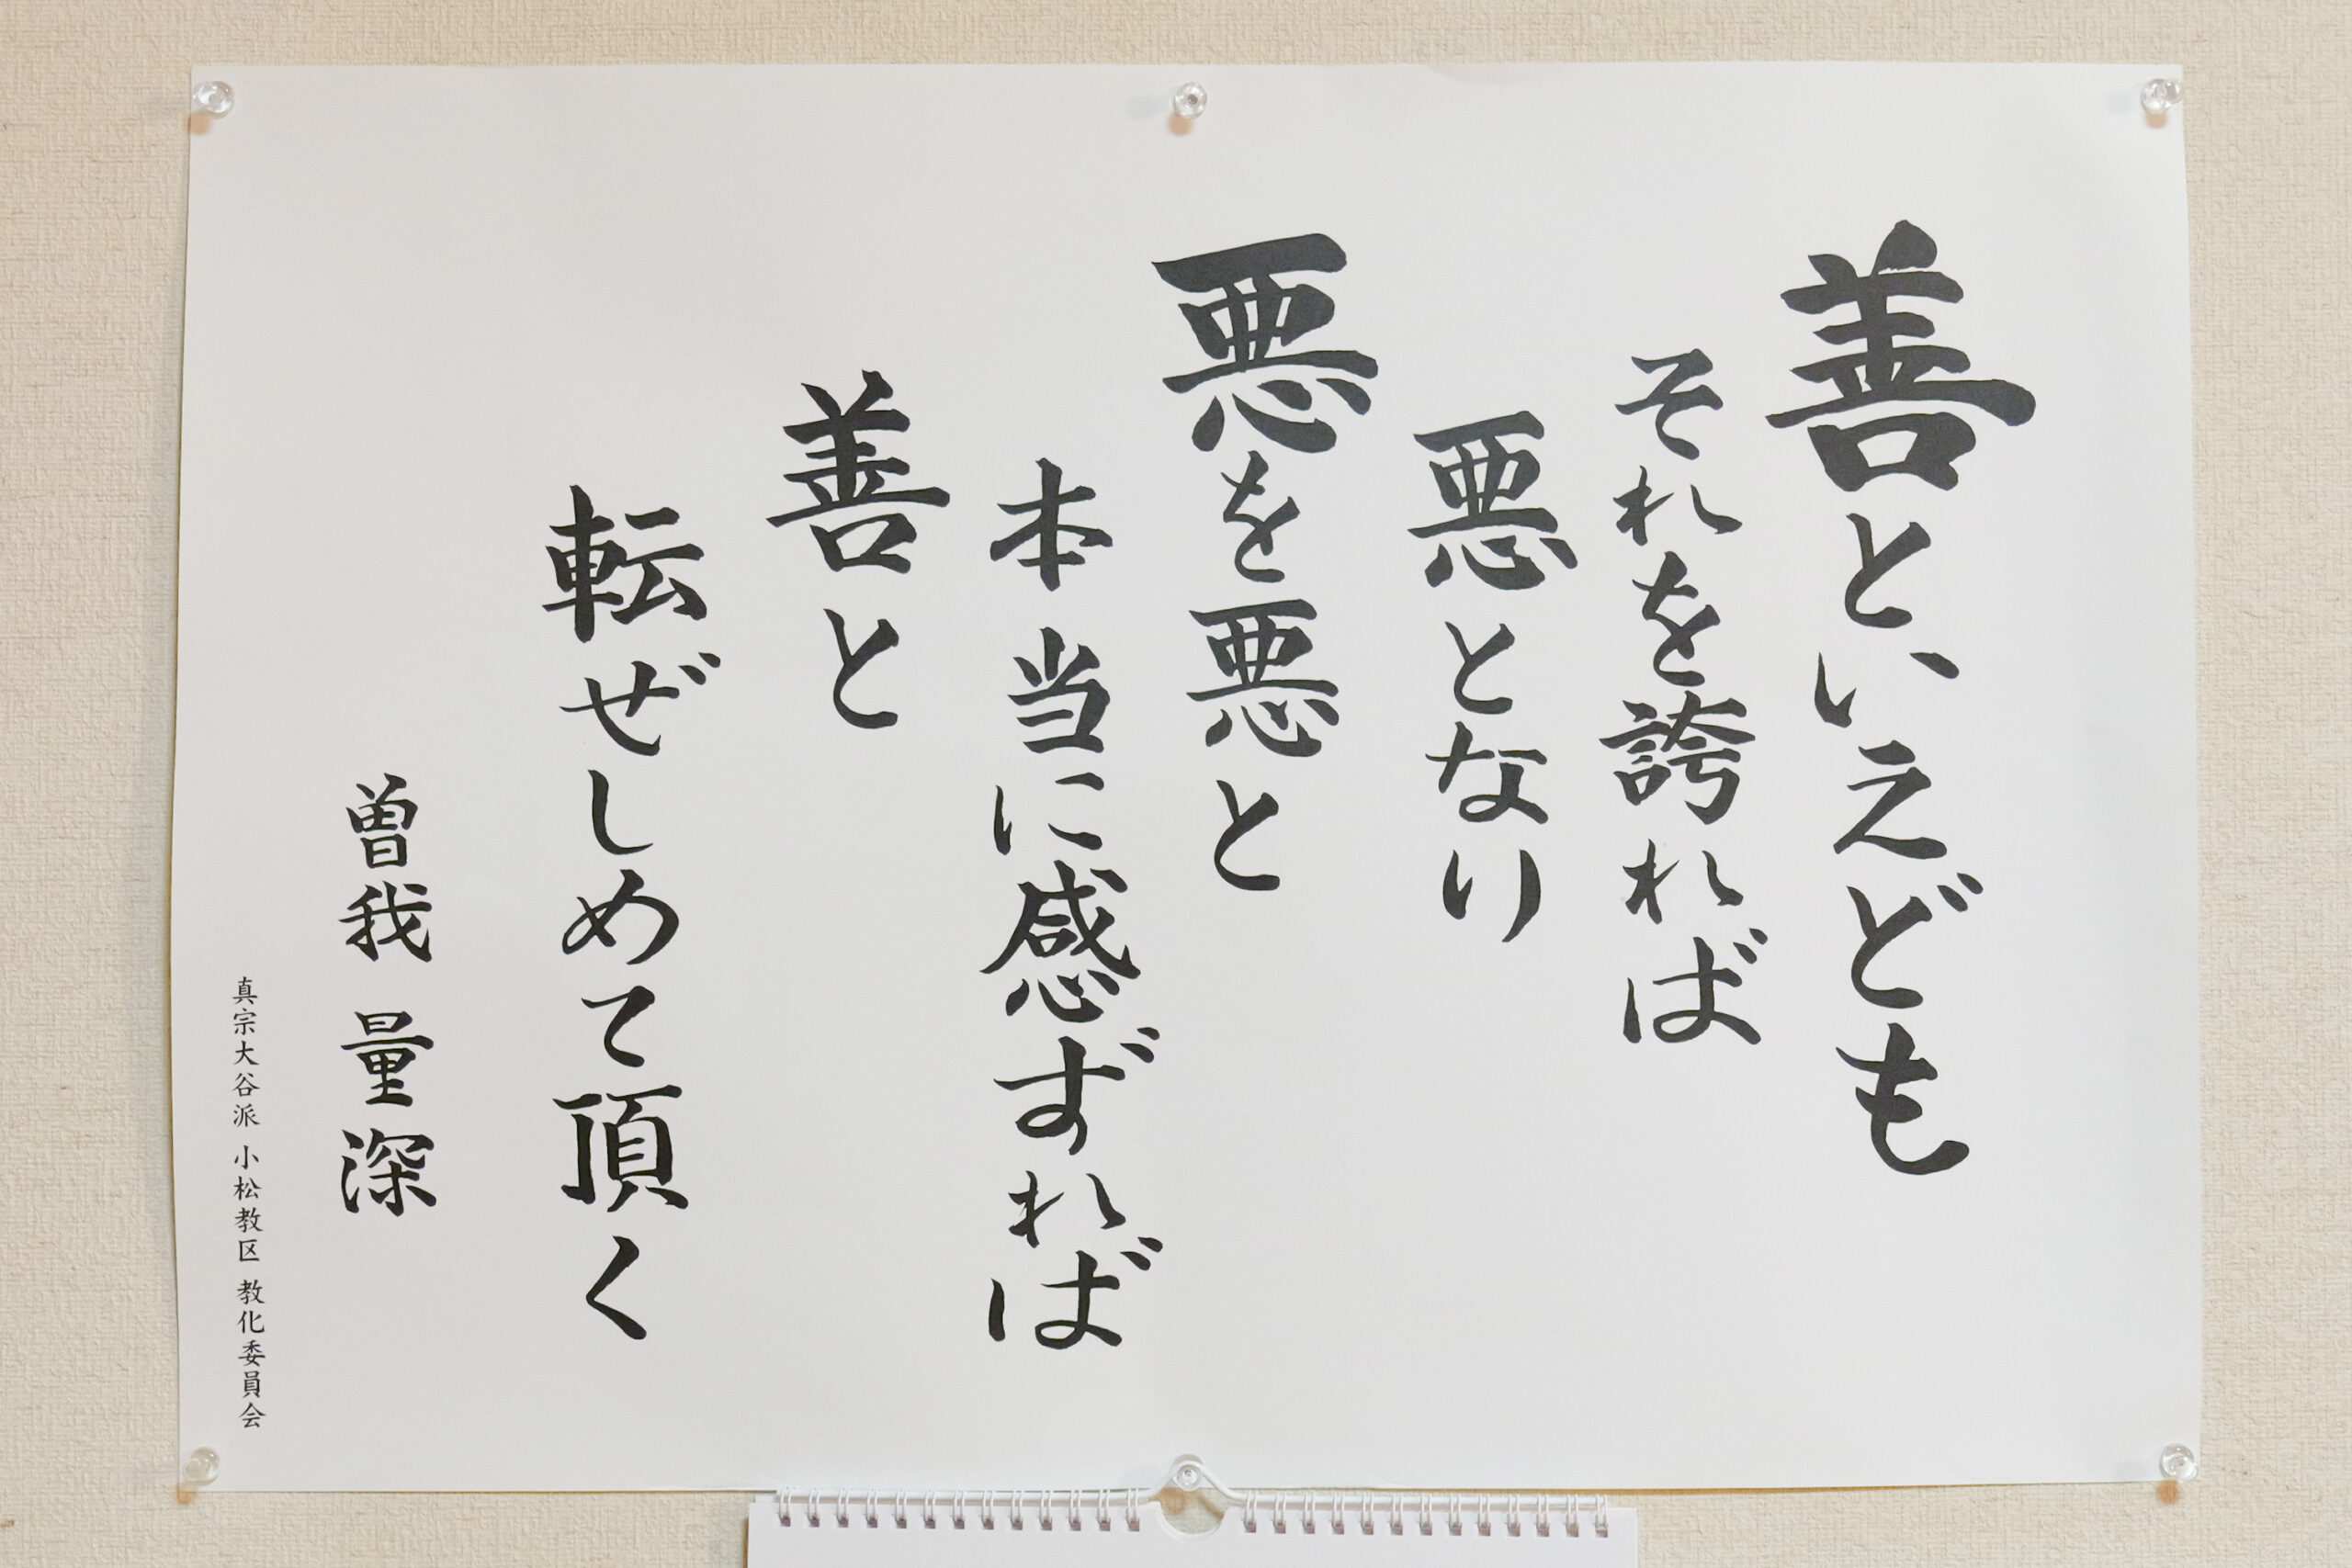 善といえども
それを誇れば
悪となり
悪を悪と
本当に感ずれば
善と
転ぜしめて頂く
曽我 量深
真宗大谷派 小松教区 教化委員会